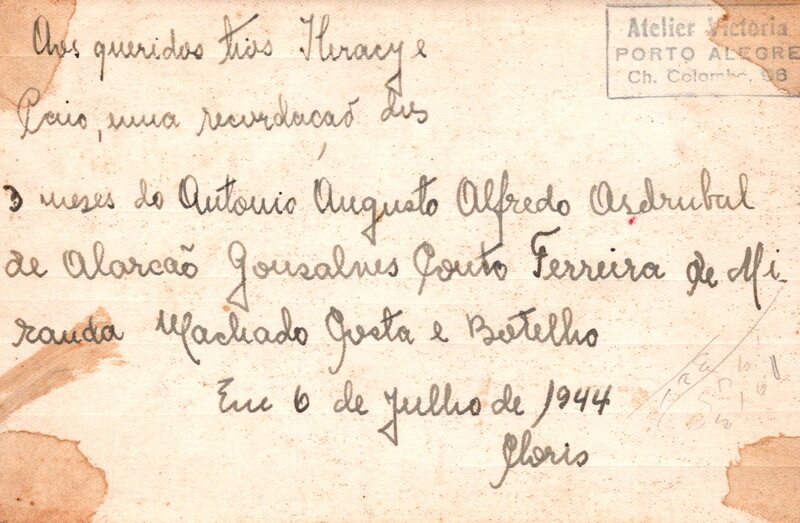 Atelier Victoria
PORTO ALEGRE
Ch. Colombo, 98
Aos queridos tios Iheracy e
Caio, uma recordação dos
3 mezes do Antonio Augusto Alfredo Asdrubal
de Alarcão Gonsalves Couto Ferreira de Mi-
randa Machado Costa e Botelho
Em 6 de Julho de 1944
Cloris